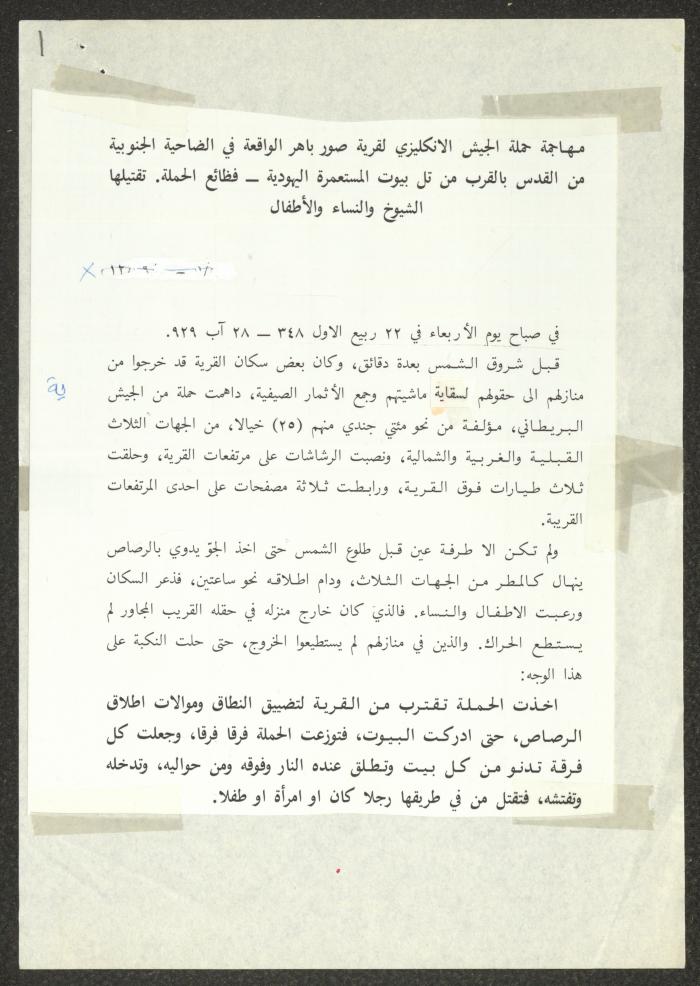 ١
مهاجمة حملة الجيش الانكليزي لقرية صور باهر الواقعة في الضاحية الجنوبية
من القدس بالقرب من تل بيوت المستعمرة اليهودية — فظائع الحملة. تقتيلها
الشيوخ والنساء والأطفال
×
في صباح يوم الأربعاء في ٢٢ ربيع الاول ٣٤٨ — ٢٨ آب ٩٢٩.
قبل شروق الشمس بعدة دقائق، وكان بعض سكان القرية قد خرجوا من
منازلهم الى حقولهم لسقاية ماشيتهم وجمع الأثمار الصيفية، داهمت حملة من الجيش
ية
البريطاني، مؤلفة من نحو مئتي جندي منهم (٢٥) خيالا، من الجهات الثلاث
القبلية والغربية والشمالية، ونصبت الرشاشات على مرتفعات القرية، وحلقت
ثلاث طيارات فوق القرية، ورابطت ثلاثة مصفحات على احدى المرتفعات
القريبة.
ولم تكن الا طرفة عين قبل طلوع الشمس حتى اخذ الجو يدوي بالرصاص
ينهال كالمطر من الجهات الثلاث، ودام اطلاقه نحو ساعتين، فذعر السكان
ورعبت الاطفال والنساء. فالذي كان خارج منزله في حقله القريب المجاور لم
يستطع الحراك. والذين في منازلهم لم يستطيعوا الخروج، حتى حلت النكبة على
هذا الوجه:
اخذت الحملة تقترب من القرية لتضييق النطاق وموالات اطلاق
الرصاص، حتى ادركت البيوت، فتوزعت الحملة فرقا فرقا، وجعلت كل
فرقة تدنو من كل بيت وتطلق عنده النار وفوقه ومن حواليه، وتدخله
وتفتشه، فتقتل من في طريقها رجلا كان او امرأة او طفلا.